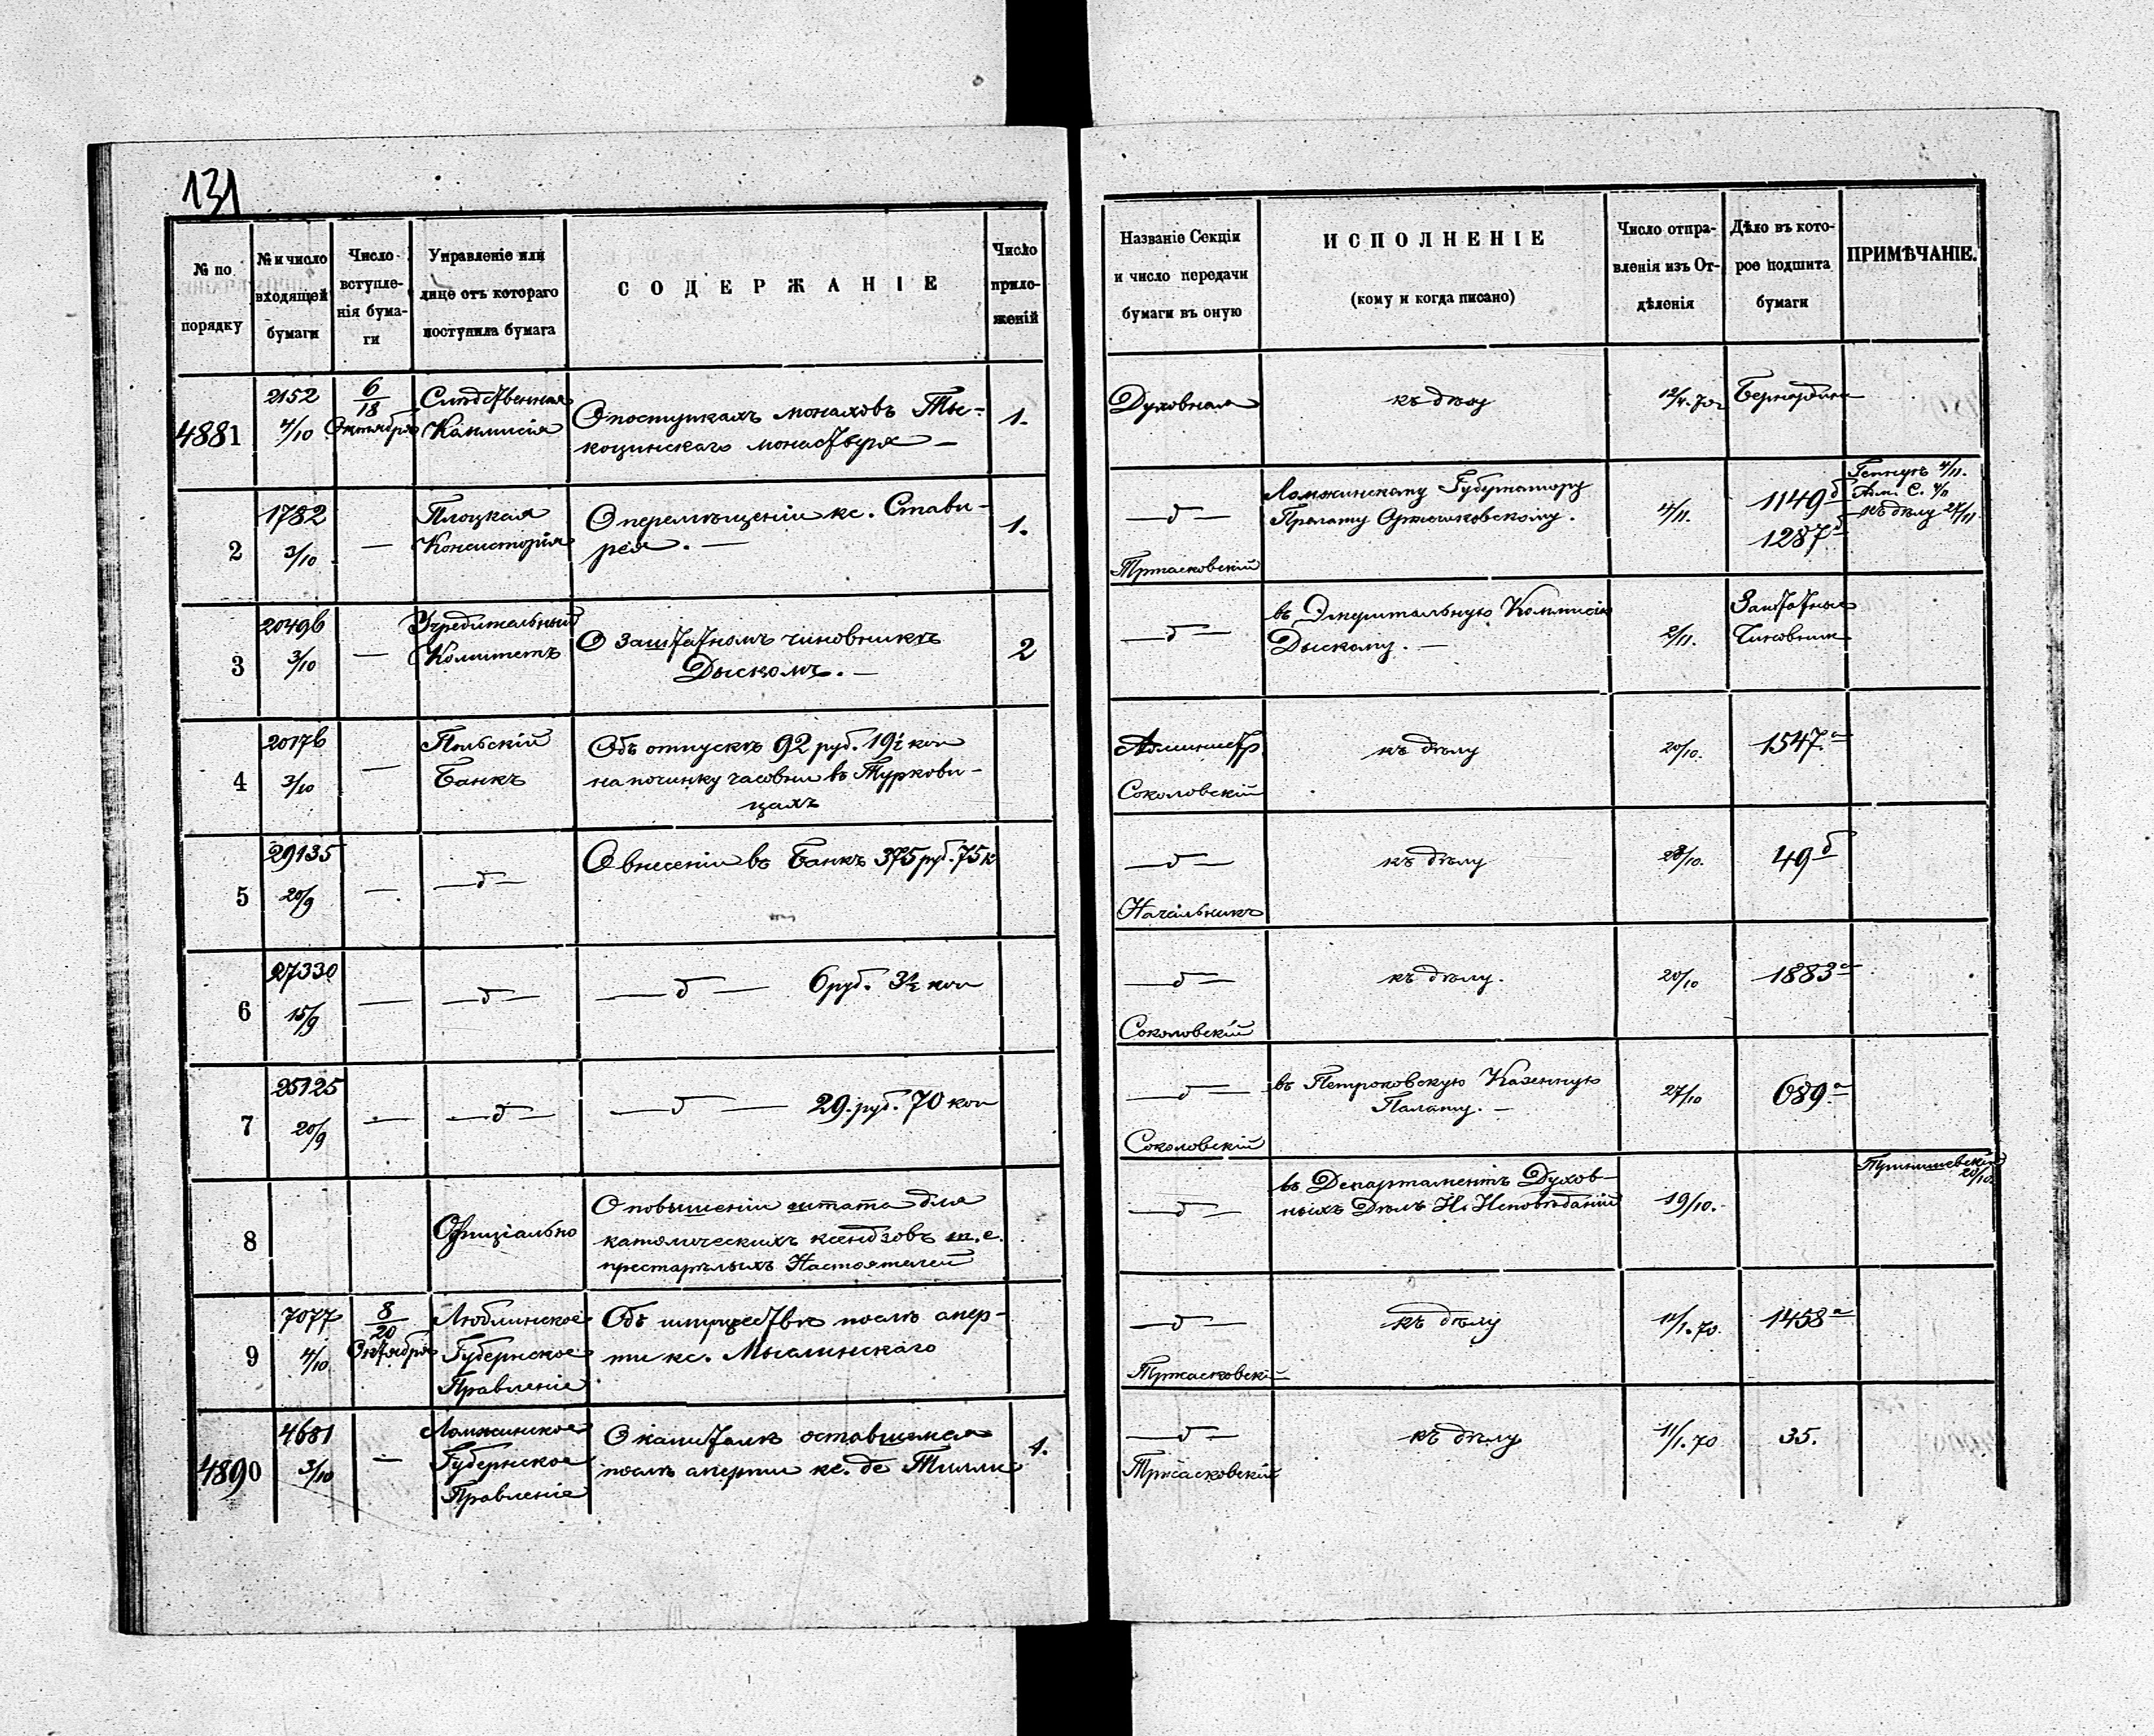 131
№ по порядку
№ и число входящей бумаги
Число вступленія бумаги
Управленіе или лице отъ котораго поступила бумага
СОДЕРЖАНІЕ
Число приложеній
Названіе Секціи и число передачи бумаги въ оную
ИСПОЛНЕНІЕ
(кому и когда писано)
Число отправленія изъ Отдѣленія
Дѣло въ которое подшита бумаги
ПРИМѢЧАНІЕ.
4881
2152
4/10
6/18
Октября
Слѣдственная
Коммисія
О поступкахъ монаховъ Ты-
коцинскаго монастыря —
1.
Духовная
къ дѣлу
2
1782
3/10
—
Плоцкая
Консисторія
О перемѣщеніи кс. Стави-
рея. —
1.
— д —
Тржасковскій
Ломжинскому Губернатору
Прелату
4/11.
1149 б
1287
4/11.
Адм. С.
къ дѣлу 27/11.
3
20496
3/10
—
Учредительный
Комитетъ
О заштатномъ чиновникѣ
Дыскомъ. —
2
— д —
въ Эмеритальную Коммисію
Дыскому. —
2/11.
Заштатные
Чиновник
4
20176
3/10
—
Польскій
Банкъ
Объ отпускѣ 92 руб. 19½ коп
на починку часовни въ Туркови-
цахъ
Админістр.
Соколовскій
къ дѣлу
20/10.
1547 а
5
29135
20/9
—
— д —
О внесеніи въ Банкъ 375 руб. 75 к
— д —
Начальникъ
къ дѣлу
28/10.
49 б
6
27330
15/9
—
— д —
— д — 6 руб. 3½ коп
— д —
Соколовскій
къ дѣлу.
20/10
1883 а
7
25125
20/9
—
— д —
— д — 29. руб. 70 коп
— д —
Соколовскій
въ Петроковскую Казенную
Палату. —
27/10
689 а
8
Офиціально
О повышеніи штата для
католическихъ ксендзовъ т. е.
престарѣлыхъ Настоятелей
— д —
въ Департаментъ Духов-
ныхъ Дѣлъ И. Исповѣданій
19/10.
20/10.
9
7077
4/10
8/20
Октября
Люблинское
Губернское
Правленіе
Объ имуществѣ послѣ смер-
ти кс. Мыслинскаго
— д —
Тржасковскій
къ дѣлу
11/1. 70.
1458 а
4890
4681
3/10
—
Ломжинское
Губернское
Правленіе
О капиталѣ оставшемся
послѣ смерти кс. де Тилли
1.
— д —
Тржасковскій
къ дѣлу
11/1. 70
35.